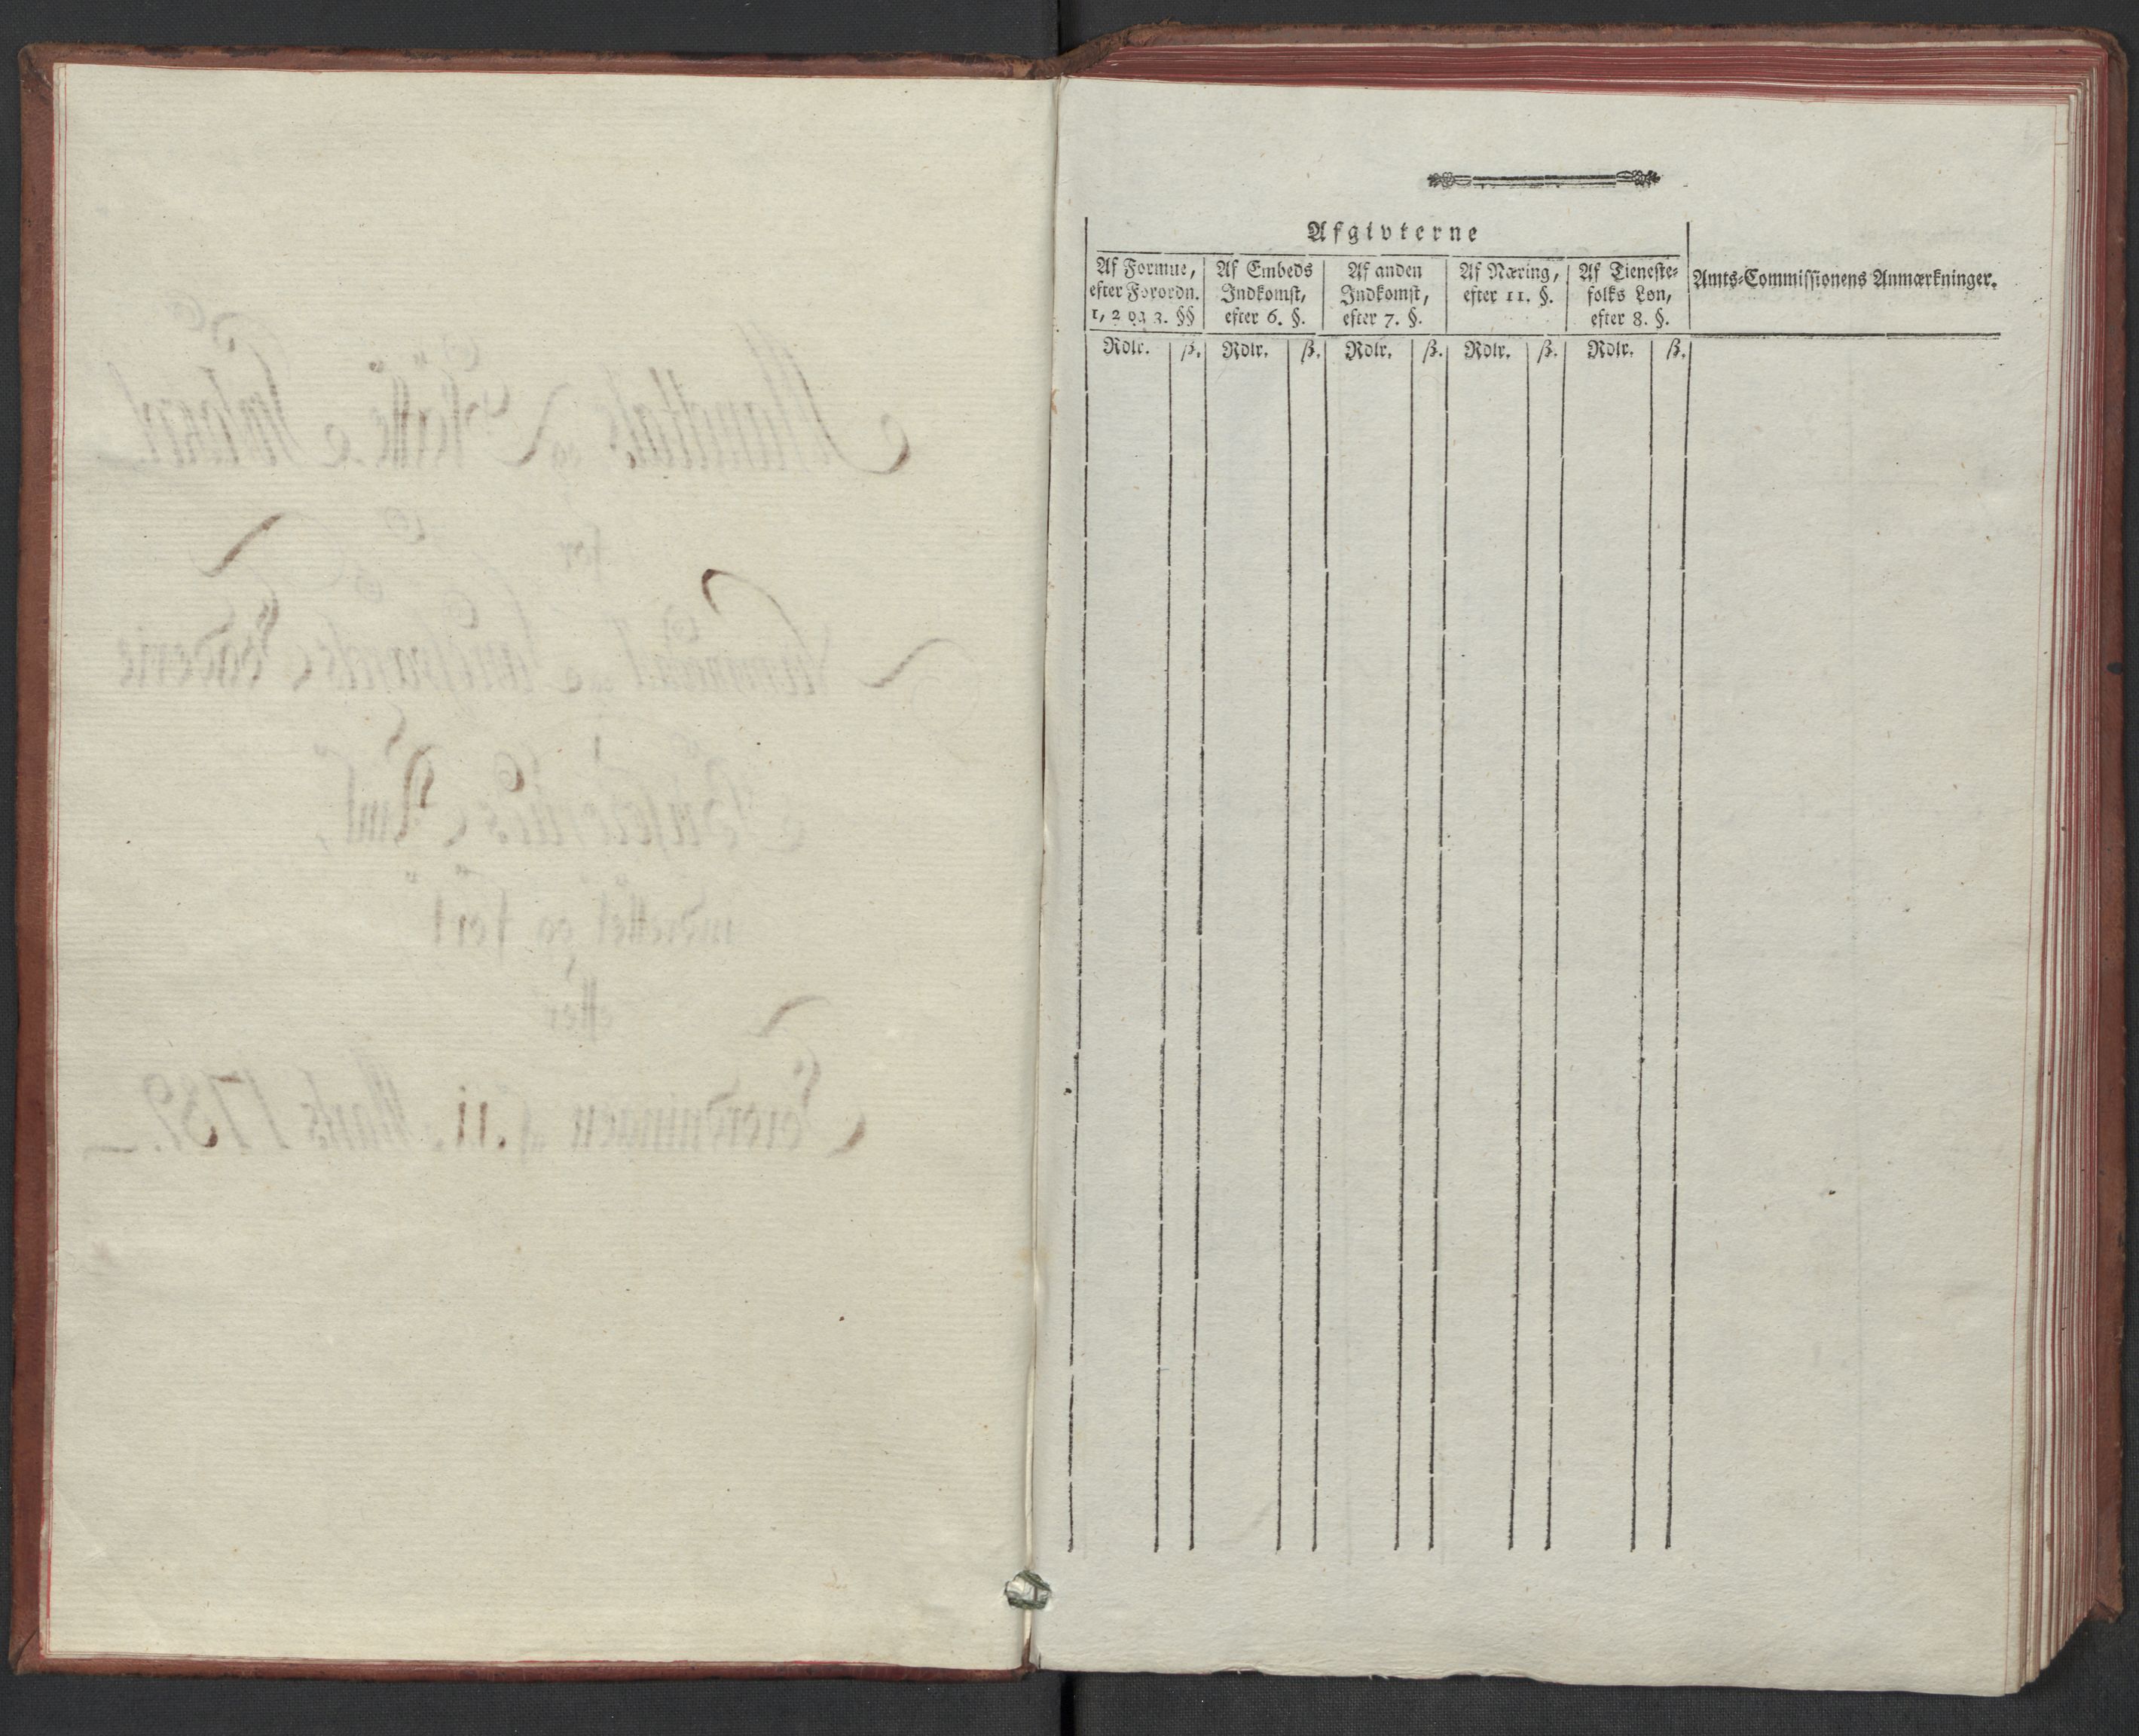 Afgivterne
Af Formue,
efter Forordn.
1, 2 og 3. §§
Af Embeds
Indkomst,
efter 6. §.
Af anden
Indkomst,
efter 7. §.
Af Næring,
efter 11. §.
Af Tieneste-
folks Løn,
efter 8. §.
Amts-Commissionens Anmærkninger.
Rdlr. ß. Rdlr. ß. Rdlr. ß. Rdlr. ß. Rdlr. ß.
Mandtals og Skatte
for
Amt,
indrettet og ført
efter
Forordningen af 11. Marts 1789.